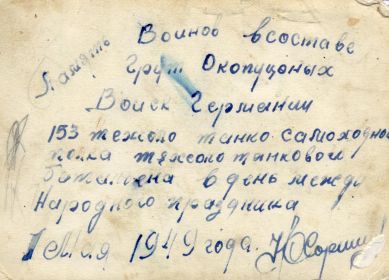 Память Воинов в составе
Груп Окопуцоных
Войск Германии
153 тежоло танко-самоходно
полка тяжолотанковой
баталена в день между
Народного праздника
1 Мая 1949 года.